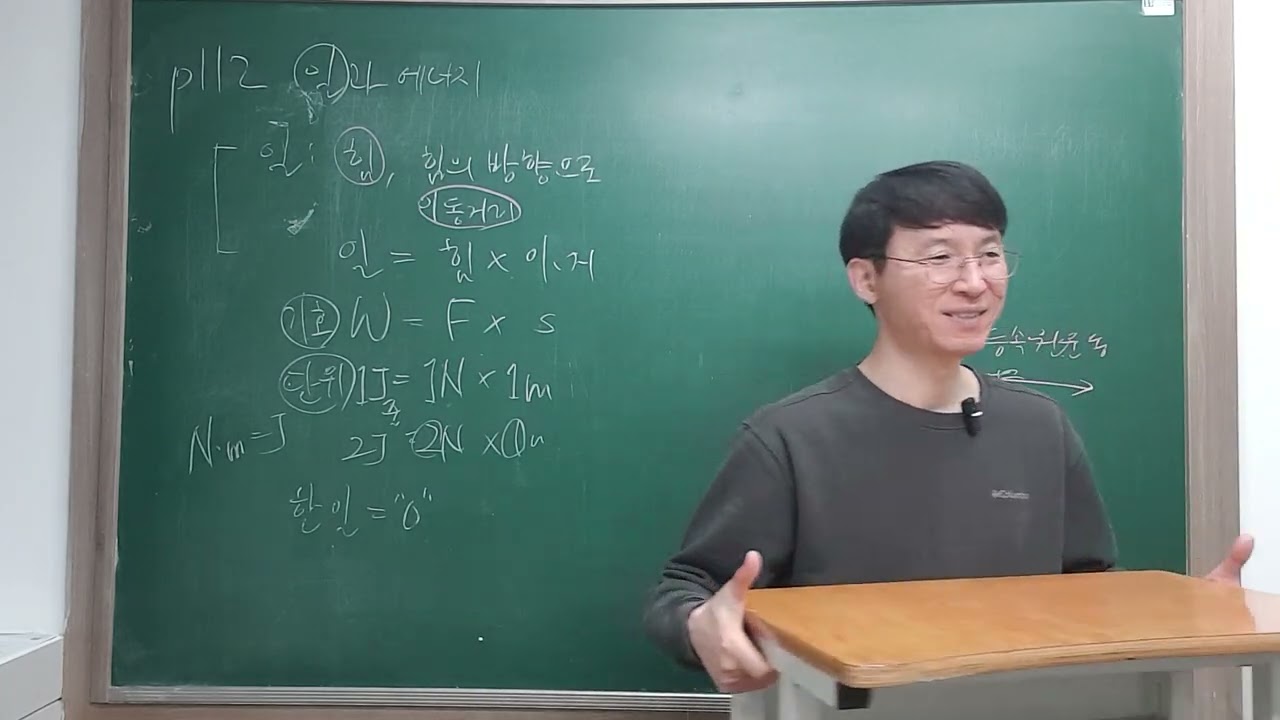 p112 일과 에너지
일: 힘, 힘의 방향으로
이동거리
일 = 힘 × 이.거
기호 W = F × s
단위 1J = 1N × 1m
줄
N·m = J 2J = 2N × 1m
한 일 = "0"
등속원운동
Columbia